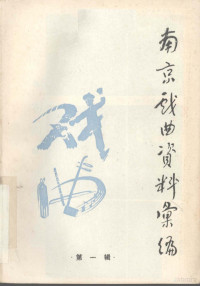 南京戏曲資料彙編
戏曲
·第一辑·